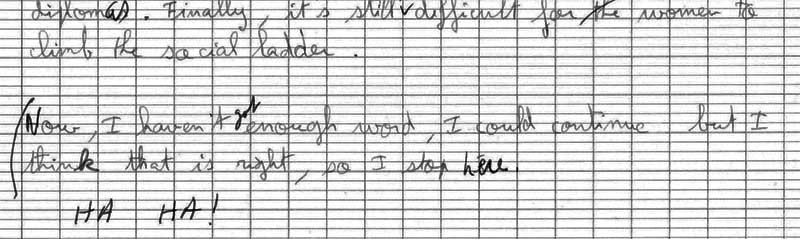 diplomas. Finally, it's still difficult for the women to
climb the social ladder.
Now, I haven't got enough word, I could continue but I
think that is right, so I stop here.
HA HA!